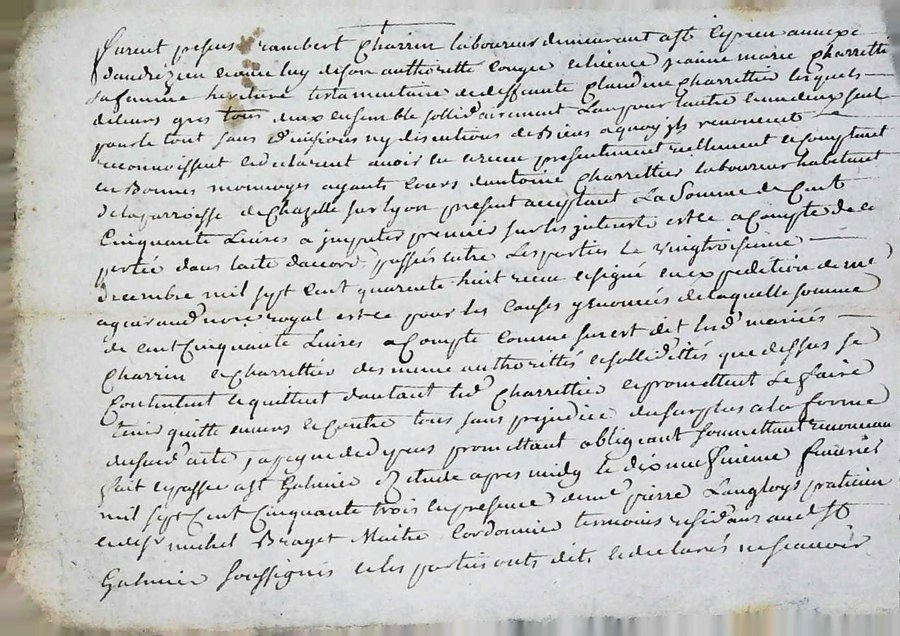 furent presens rambert Charrin laboureur demeurant a st Cyprien annexe
dandrezieu et avec luy de son authoritté congée et licence jeanne marie Charrettie
sa femme heritiere testamentaire de deffunte Claudine Charrettier lesquels
de leurs grés tous deux ensemble sollidairement l'un pour l'autre et un deux seul
pour le tout sans divisions ny discutions de biens a quoy ils renoncent
reconnoissent et declarent avoir eu et receu presentement reellement et comptant
en bonnes monnoyes ayants cours dantoine Charrettier laboureur habitant
de la parroisse de Chazelle sur lyon present acceptant La Somme de Cent
Cinquante Livres a imputer premier sur les interets et ce a Compte de ce
portée dans lacte daccord passés entre Les parties Le vingtroisieme
decembre mil sept cent quarente huit receu et signé en expedition de me
not re royal et ce pour les causes y enoncées de laquelle somme
de cent Cinquante Livres a Compte comme sus est dit lesd mariés
Charrin et Charrettier des meme authorittés et sollid ittés que dessus se
Contentent et quittent dautant led Charrettier et promettent Le faire
tenir quitte envers et contre tous sans prejudice du surplus a la forme
dud acte promettant obligeant soummettant renonceant
fait et passé a st Galmier etude apres midy le dix neufvieme fevrier
mil sept Cent Cinquante trois en presence de me pierre Langloys praticien
et de sr michel Braget Maitre Cordonnier temoins residans aud St
Galmier soussignés et les parties onts dit et declarés ne scavoir